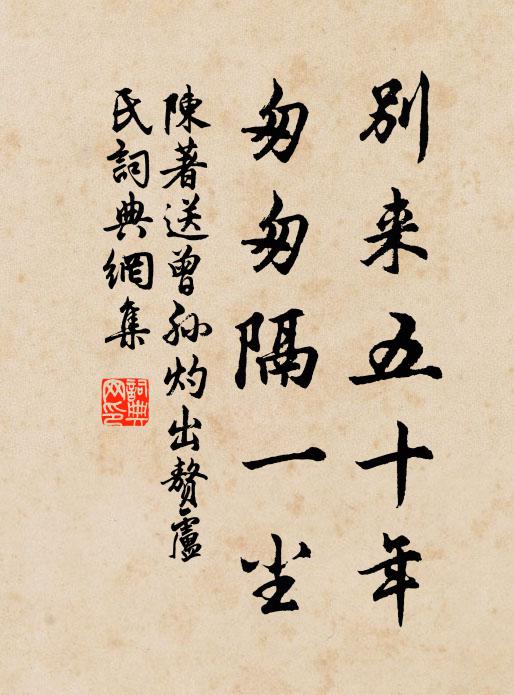 別来五十年
匆匆隔一尘
陳著送曾孫灼出贅盧
氏詞典網集
詞典
网印